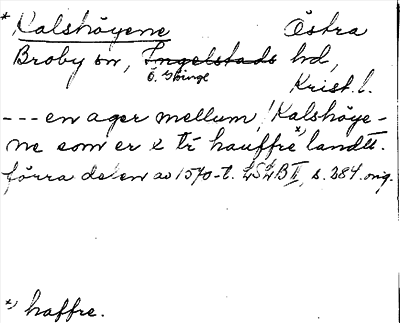 *Kalshöyene Östra
Broby sn, Ingelstads hd,
Ö. Göinge
Krist. l.
--- en ager mellum, Kalshöye-
ne som er 2 tr hauffre*) landtt.
förra delen av 1570-t. LSLB II, s. 384. orig.
*) haffre.